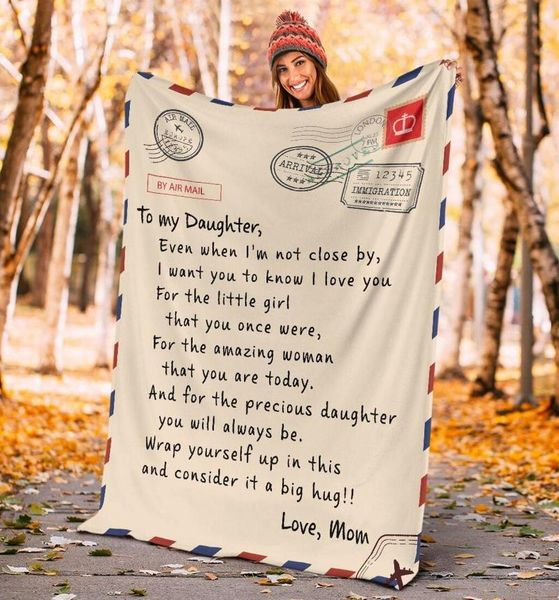 AIR MAIL
LONDON
ARRIVAL
12345
IMMIGRATION
BY AIR MAIL
To my Daughter,
Even when I'm not close by,
I want you to know I love you
For the little girl
that you once were,
For the amazing woman
that you are today.
And for the precious daughter
you will always be.
Wrap yourself up in this
and consider it a big hug!!
Love, Mom